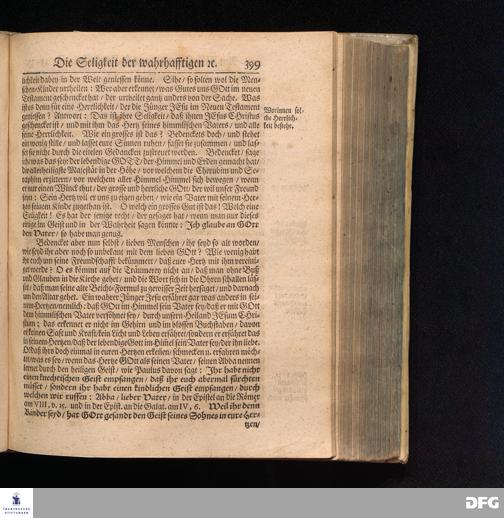 Die Seligkeit der wahrhafftigen ꝛc. 399
lichkeit dabey in der Welt geniessen könne. Sihe/ so solten wol die Men-
schen-Kinder urtheilen: Wer aber erkennet/ was Gutes uns GOtt im neuen
Testament geschencket hat/ der urtheilet gantz anders von der Sache. Was
ists denn für eine Herrlichkeit/ der die Jünger JEsu im Neuen Testament
geniessen? Antwort: Das ist ihre Seligkeit/ daß ihnen JEsus Christus
geschencket ist/ und mit ihm das Hertz seines himmlischen Vaters/ und alle
seine Herrlichkeit. Wie ein grosses ist das? Bedenckets doch/ und stehet
ein wenig stille/ und lasset eure Sinnen ruhen/ fasset sie zusammen/ und las-
set sie nicht durch die eiteln Gedancken zustreuet werden. Bedencket/ sage
ich/ was das sey: der lebendige GOTT/ der Himmel und Erden gemacht hat/
die allerheiligste Majestät in der Höhe/ vor welchem die Cherubim und Se-
raphim erzittern/ vor welchem aller Himmel-Himmel sich bewegen/ wenn
er nur einen Winck thut/ der grosse und herrliche GOtt/ der will unser Freund
seyn: Sein Hertz will er uns zu eigen geben/ wie ein Vater mit seinem Her-
tzen seinem Kinde zugethan ist. O welch ein grosses Gut ist das! Welch eine
Seligkeit! Es hat der jenige recht/ der gesaget hat/ wenn man nur dieses
einige im Geist und in der Wahrheit sagen könnte: Ich glaube an GOtt
den Vater/ so habe man genug.
Worinnen sol-
che Herrlich-
keit bestehe.
Bedencket aber nun selbst/ lieben Menschen/ ihr seyd so alt worden/
wie seyd ihr aber noch so unbekant mit dem lieben GOtt? Wie wenig habt
ihr euch um seine Freundschafft bekümmert/ daß euer Hertz mit ihm vereini-
get werde? O es kömmt auf die Träumerey nicht an/ daß man ohne Buß
und Glauben in die Kirche gehet/ und die Wort sich in die Ohren schallen läß-
set/ daß man seine alte Beicht-Formul zu gewisser Zeit hersaget/ und darnach
un den Altar gehet. Ein wahrer Jünger Jesu erfähret gar was anders in sei-
nem Hertzen/ nemlich: daß GOtt im Himmel sein Vater sey/ daß er mit GOtt
dem himmlischen Vater versöhnet sey/ durch unsern Heiland JEsum Chri-
stum; das erkennet er nicht im Gehirn und im blossen Buchstaben/ davon
er keinen Safft und Krafft/ kein Licht und Leben erfähret/ sondern er erfähret das
in seinem Hertzen/ daß der lebendige Gott im Himel sein Vater sey/ der ihn liebe.
O! daß ihrs doch einmal in euren Hertzen erkeñen/ schmecken u. erfahren möch-
tet/ was es sey/ wenn das Hertz GOtt als seinen Vater/ seinen Abba nennen
lernet durch den heiligen Geist/ wie Paulus davon sagt: Ihr habt nicht
einen knechtischen Geist empfangen/ daß ihr euch abermal fürchten
müsset/ sondern ihr habt einen kindlichen Geist empfangen/ durch
welchen wir ruffen: Abba/ lieber Vater/ in der Epistel an die Römer
am VIII, v. 15. und in der Epist. an die Galat. am IV, 6. Weil ihr denn
Kinder seyd/ hat GOtt gesandt den Geist seines Sohnes in eure Her-
tzen/
FRANCKESCHE STIFTUNGEN
DFG